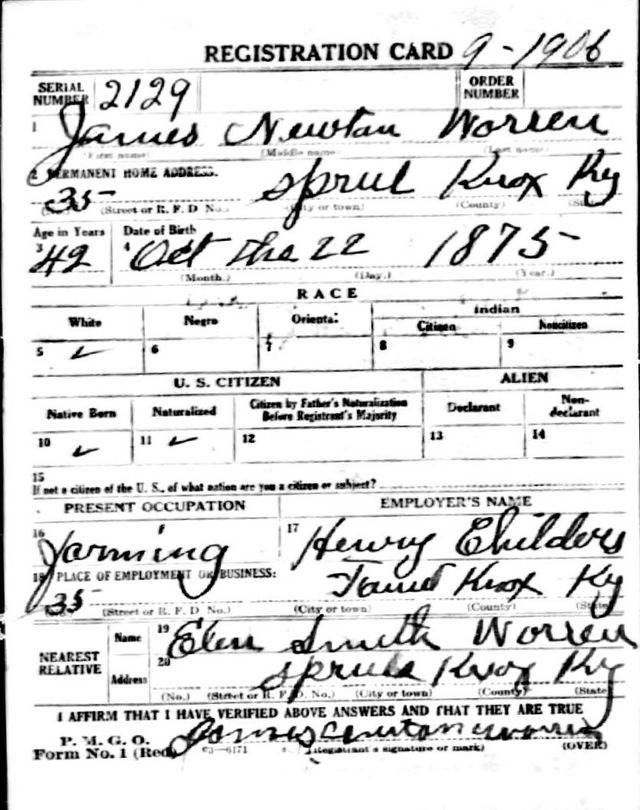 REGISTRATION CARD 9-1906
SERIAL NUMBER 2129 ORDER NUMBER
1 James Newtan Worren
(First name) (Middle name) (Last name)
2 PERMANENT HOME ADDRESS.
35 sprul Knox Ky
(No.) (Street or R. F. D No.) (City or town) (County) (State)
Age in Years Date of Birth
3 42 4 Oct the 22 1875
(Month.) (Day.) (Year.)
RACE
White Negro Oriental Indian
Citizen Noncitizen
5 ✓ 6 7 8 9
U. S. CITIZEN ALIEN
Native Born Naturalized Citizen by Father's Naturalization Before Registrant's Majority Declarant Non-declarant
10 ✓ 11 ✓ 12 13 14
15
If not a citizen of the U. S., of what nation are you a citizen or subject?
PRESENT OCCUPATION EMPLOYER'S NAME
16 Farming 17 Henry Childers
18 PLACE OF EMPLOYMENT OR BUSINESS:
35 Knox Ky
(No.) (Street or R. F. D No.) (City or town) (County) (State)
NEAREST RELATIVE
Name 19 Elen Smith Worren
Address 20 sprule Knox Ky
(No.) (Street or R. F. D. No.) (City or town) (County) (State)
I AFFIRM THAT I HAVE VERIFIED ABOVE ANSWERS AND THAT THEY ARE TRUE
P. M. G. O.
Form No. 1 (Red) 03-6171 James Newton Worren
(Registrant's signature or mark) (OVER)